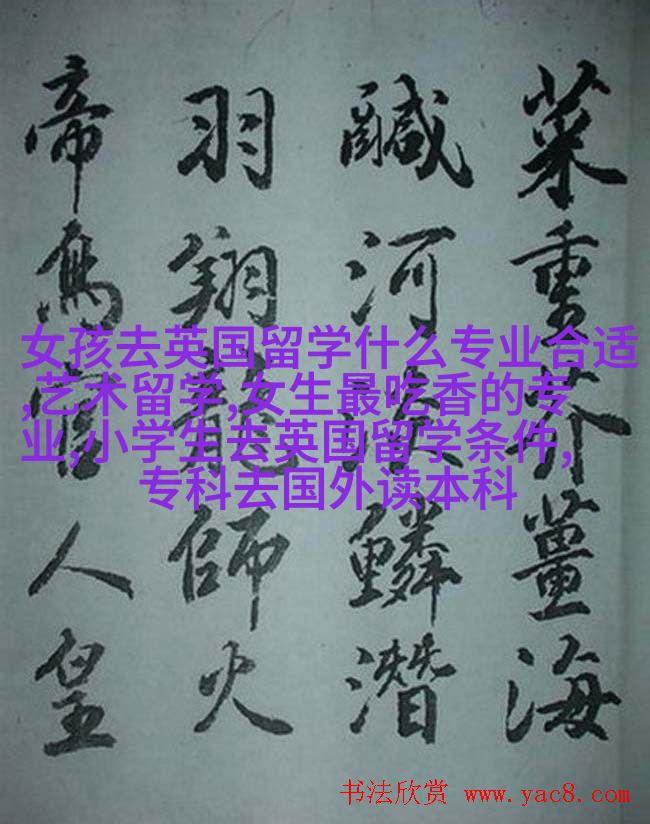 菜重芥薑海
鹹河淡鱗潛
羽翔龍師火
帝鳥官人皇
女孩去英国留学什么专业合适
,艺术留学,女生最吃香的专
业,小学生去英国留学条件,
专科去国外读本科
书法欣赏 www.yac8.com